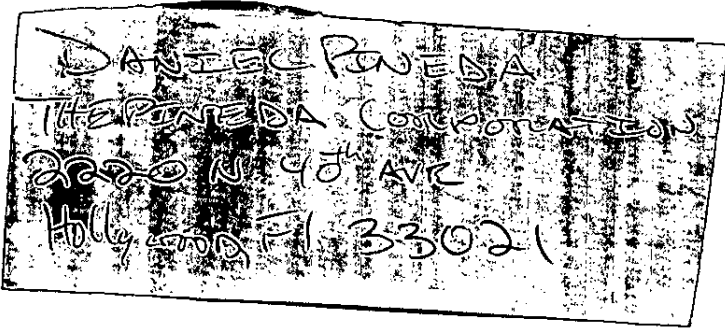 DANIEL PINEDA
THE PINEDA CORPORATION
2220 N 40th AVE
Hollywood, Fl 33021